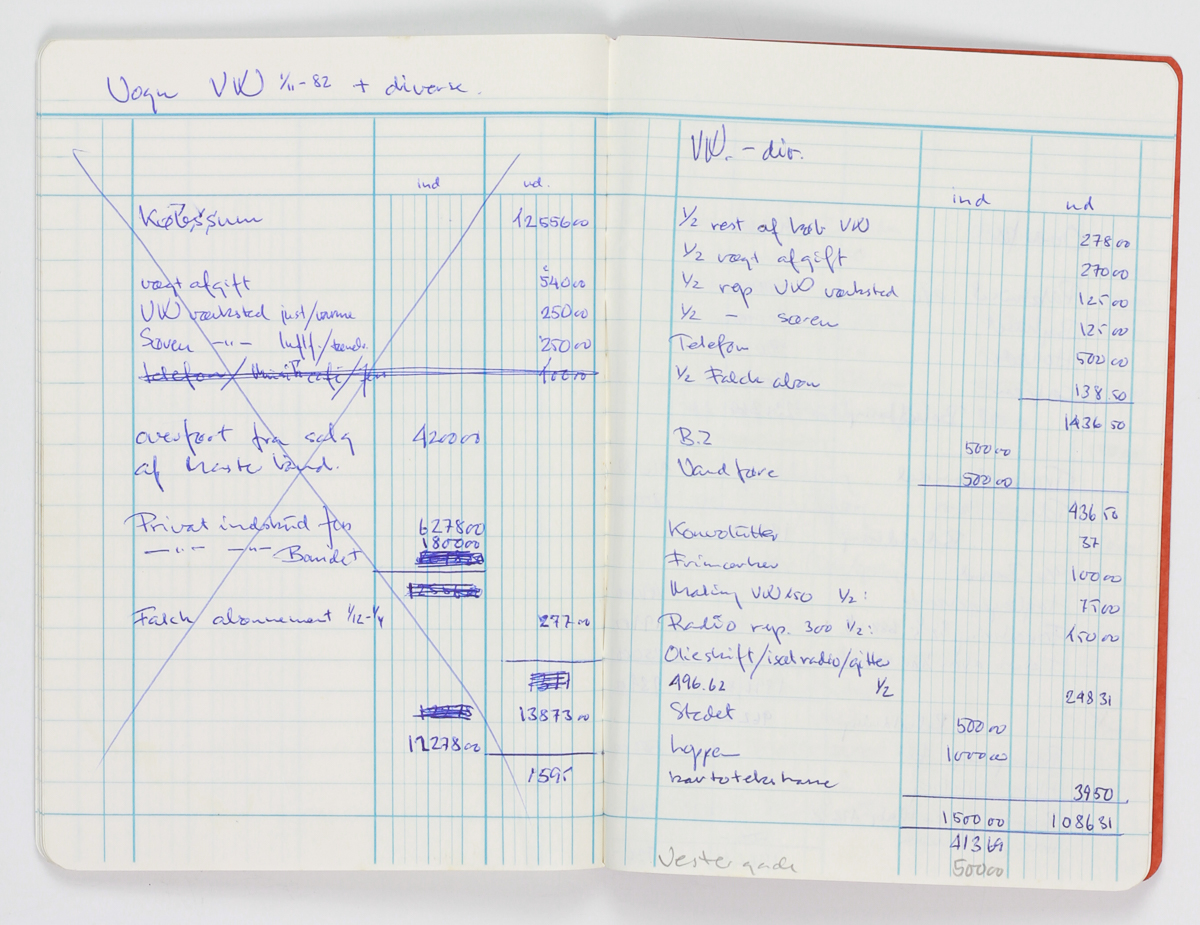 Vogn VW 1/11-82 + diverse.
ind ud.
12556 00
vægt afgift 540 00
VW værksted just/varme 250 00
Søren -"- /tænds. 250 00
telefon / 100 00
overført fra salg 4200 00
af
Privat indskud 6278 00
-"- -"- Bandet 1800 00
Falck abonnement 1/12-1/4 277 00
13873 00
12278 00
1595
VW. - div.
ind ud
1/2 rest af køb VW 278 00
1/2 vægt afgift 270 00
1/2 rep VW værksted 125 00
1/2 - søren 125 00
Telefon 500 00
1/2 Falck abon 138 50
1436 50
B.Z 500 00
Vandfære 500 00
436 50
Konvolutter 37
Frimærker 100 00
Maling VW 150 1/2: 75 00
Radio rep. 300 1/2: 150 00
Olieskift/isæt radio/gitter
496.62 1/2 248 31
Stedet 500 00
loppen 1000 00
kartotekskasse 39 50
1500 00 1086 31
413 69
Vestergade 500 00